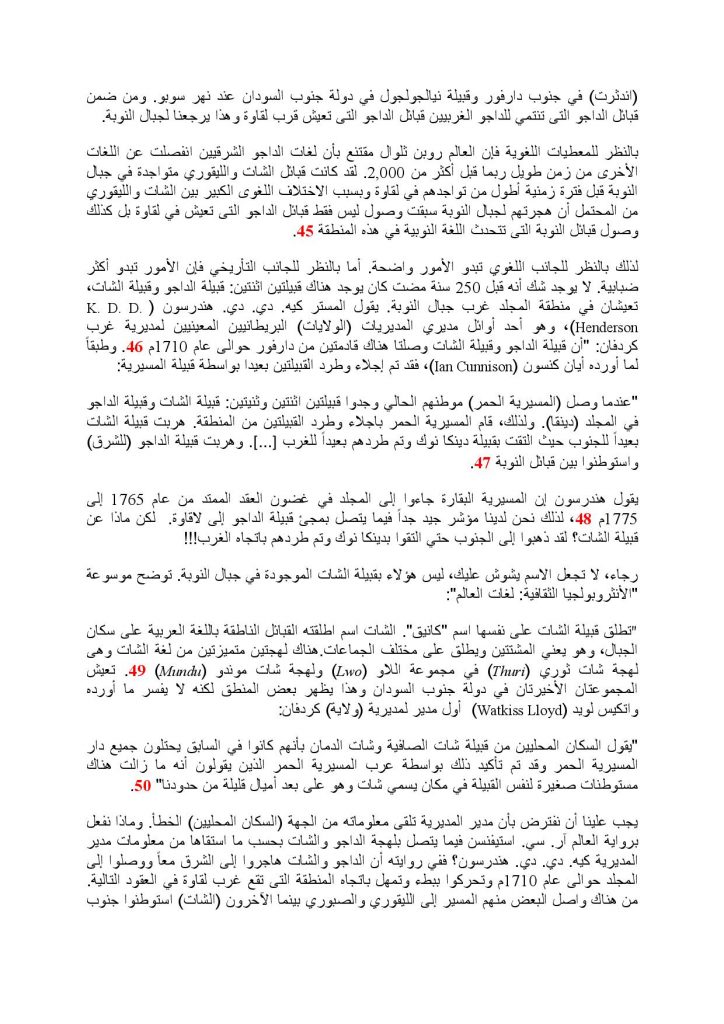 (اندثرت) في جنوب دارفور وقبيلة نيالجولجول في دولة جنوب السودان عند نهر سوبو. ومن ضمن
قبائل الداجو التى تنتمي للداجو الغربيين قبائل الداجو التى تعيش قرب لقاوة وهذا يرجعنا لجبال النوبة.
بالنظر للمعطيات اللغوية فإن العالم روبن ثلوال مقتنع بأن لغات الداجو الشرقيين انفصلت عن اللغات
الأخرى من زمن طويل ربما قبل أكثر من 2,000. لقد كانت قبائل الشات والليقوري متواجدة في جبال
النوبة قبل فترة زمنية أطول من تواجدهم في لقاوة وبسبب الاختلاف اللغوى الكبير بين الشات والليقوري
من المحتمل أن هجرتهم لجبال النوبة سبقت وصول ليس فقط قبائل الداجو التى تعيش في لقاوة بل كذلك
وصول قبائل النوبة التى تتحدث اللغة النوبية في هذه المنطقة 45.
لذلك بالنظر للجانب اللغوي تبدو الأمور واضحة. أما بالنظر للجانب التأريخي فإن الأمور تبدو أكثر
ضبابية. لا يوجد شك أنه قبل 250 سنة مضت كان يوجد هناك قبيلتين اثنتين: قبيلة الداجو وقبيلة الشات،
تعيشان في منطقة المجلد غرب جبال النوبة. يقول المستر كيه. دي. دي. هندرسون (K. D. D.
Henderson)، وهو أحد أوائل مديري المديريات (الولايات) البريطانيين المعينيين لمديرية غرب
كردفان: "أن قبيلة الداجو وقبيلة الشات وصلتا هناك قادمتين من دارفور حوالى عام 1710م 46. وطبقاً
لما أورده أيان كنسون (Ian Cunnison)، فقد تم إجلاء وطرد القبيلتين بعيدا بواسطة قبيلة المسيرية:
"عندما وصل (المسيرية الحمر) موطنهم الحالي وجدوا قبيلتين اثنتين وثنيتين: قبيلة الشات وقبيلة الداجو
في المجلد (دينقا). ولذلك، قام المسيرية الحمر باجلاء وطرد القبيلتين من المنطقة. هربت قبيلة الشات
بعيداً للجنوب حيث التقت بقبيلة دينكا نوك وتم طردهم بعيداً للغرب [...]. وهربت قبيلة الداجو (للشرق)
واستوطنوا بين قبائل النوبة 47.
يقول هندرسون إن المسيرية البقارة جاءوا إلى المجلد في غضون العقد الممتد من عام 1765 إلى
1775م 48، لذلك نحن لدينا مؤشر جيد جداً فيما يتصل بمجئ قبيلة الداجو إلى لاقاوة. لكن ماذا عن
قبيلة الشات؟ لقد ذهبوا إلى الجنوب حتي التقوا بدينكا نوك وتم طردهم باتجاه الغرب!!!
رجاء، لا تجعل الاسم يشوش عليك، ليس هؤلاء بقبيلة الشات الموجودة في جبال النوبة. توضح موسوعة
"الأنثروبولجيا الثقافية: لغات العالم":
"تطلق قبيلة الشات على نفسها اسم "كانيق". الشات اسم اطلقته القبائل الناطقة باللغة العربية على سكان
الجبال، وهو يعني المشتتين ويطلق على مختلف الجماعات.هناك لهجتين متميزتين من لغة الشات وهى
لهجة شات ثوري (Thuri) في مجموعة اللاو (Lwo) ولهجة شات موندو (Mundu) 49. تعيش
المجموعتان الأخيرتان في دولة جنوب السودان وهذا يظهر بعض المنطق لكنه لا يفسر ما أورده
واتكيس لويد (Watkiss Lloyd) أول مدير لمديرية (ولاية) كردفان:
"يقول السكان المحليين من قبيلة شات الصافية وشات الدمان بأنهم كانوا في السابق يحتلون جميع دار
المسيرية الحمر وقد تم تأكيد ذلك بواسطة عرب المسيرية الحمر الذين يقولون أنه ما زالت هناك
مستوطنات صغيرة لنفس القبيلة في مكان يسمي شات وهو على بعد أميال قليلة من حدودنا" 50.
يجب علينا أن نفترض بأن مدير المديرية تلقى معلوماته من الجهة (السكان المحليين) الخطأ. وماذا نفعل
برواية العالم آر. سي. استيفنسن فيما يتصل بلهجة الداجو والشات بحسب ما استقاها من معلومات مدير
المديرية كيه. دي. دي. هندرسون؟ ففي روايته أن الداجو والشات هاجروا إلى الشرق معاً ووصلوا إلى
المجلد حوالى عام 1710م وتحركوا ببطء وتمهل باتجاه المنطقة التى تقع غرب لقاوة في العقود التالية.
من هناك واصل البعض منهم المسير إلى الليقوري والصبوري بينما الآخرون (الشات) استوطنوا جنوب